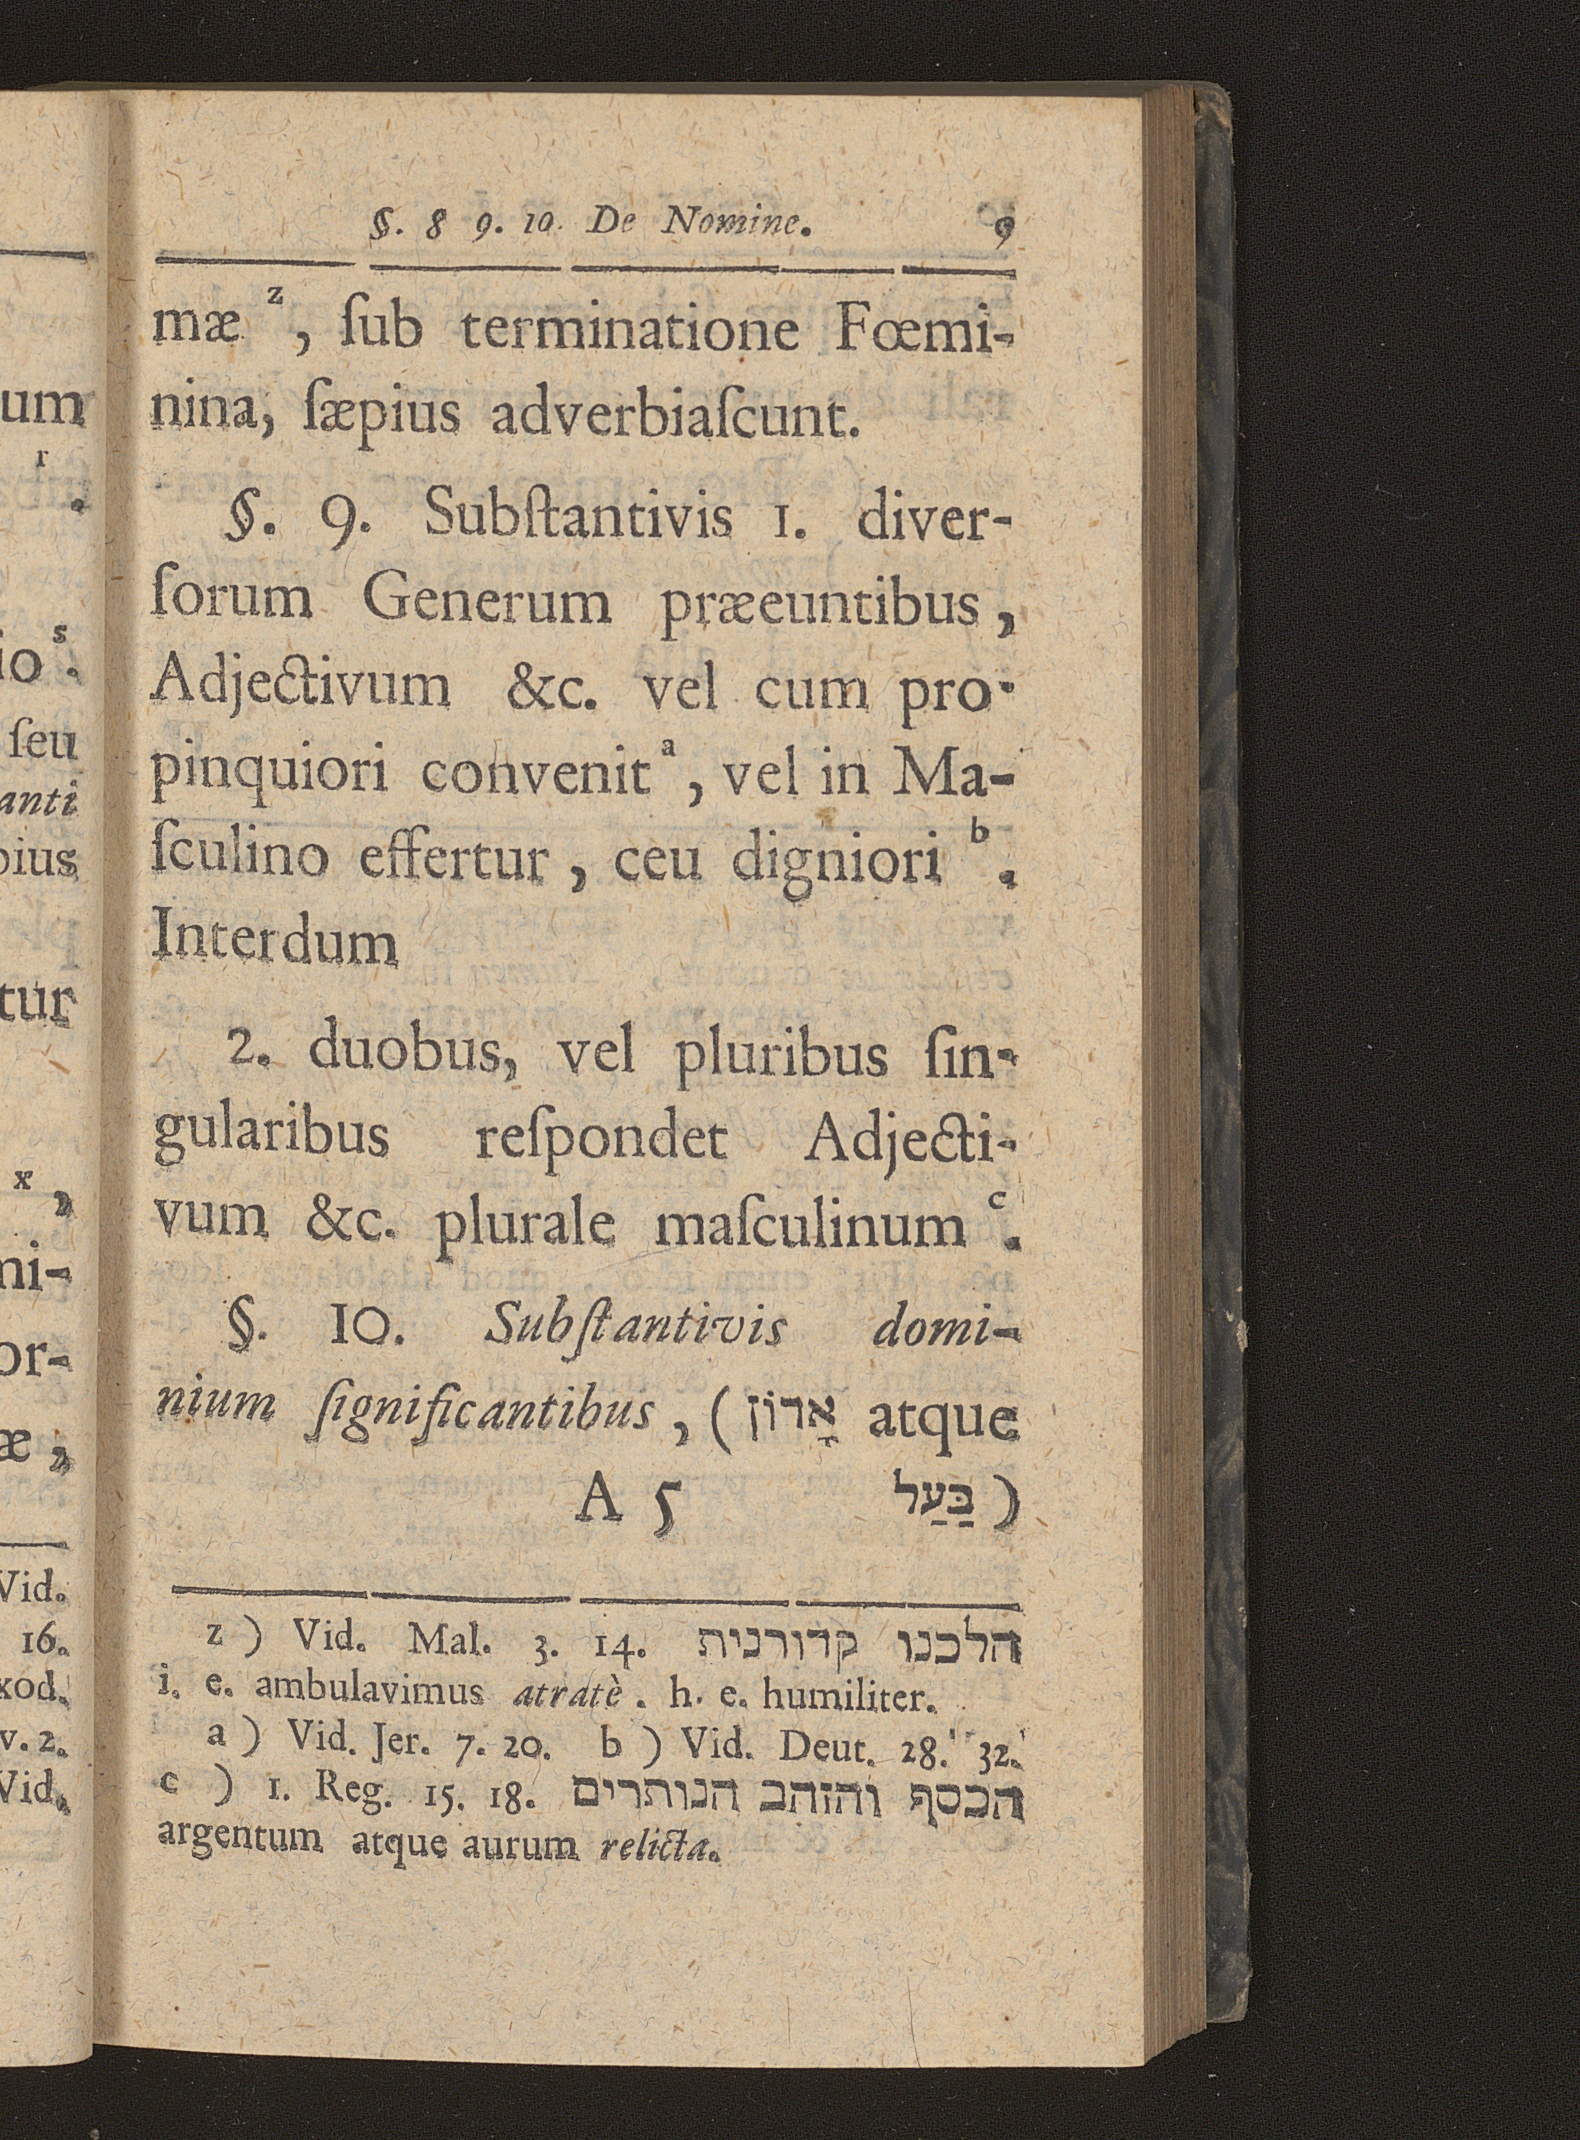 §. 8 9. 10. De Nomine. 9
mæ z, ſub terminatione Fœmi-
nina, ſæpius adverbiaſcunt.
§. 9. Subſtantivis 1. diver-
ſorum Generum præeuntibus,
Adjectivum &c. vel cum pro-
pinquiori convenit a, vel in Ma-
ſculino effertur, ceu digniori b.
Interdum
2. duobus, vel pluribus ſin-
gularibus reſpondet Adjecti-
vum &c. plurale maſculinum c.
§. 10. Subſtantivis domi-
nium ſignificantibus, (אָדוֹן atque
A 5 בַּעַל)
z) Vid. Mal. 3. 14. הלכנו קדורנית
i. e. ambulavimus atratè. h. e. humiliter.
a) Vid. Jer. 7. 20. b) Vid. Deut. 28. 32.
c) 1. Reg. 15. 18. הכסף והזהב הנותרים
argentum atque aurum relicta.
um
r
.
io s.
ſeu
anti
pius
tur
x,
mi-
or-
æ,
Vid.
16.
xod.
v. 2.
Vid.